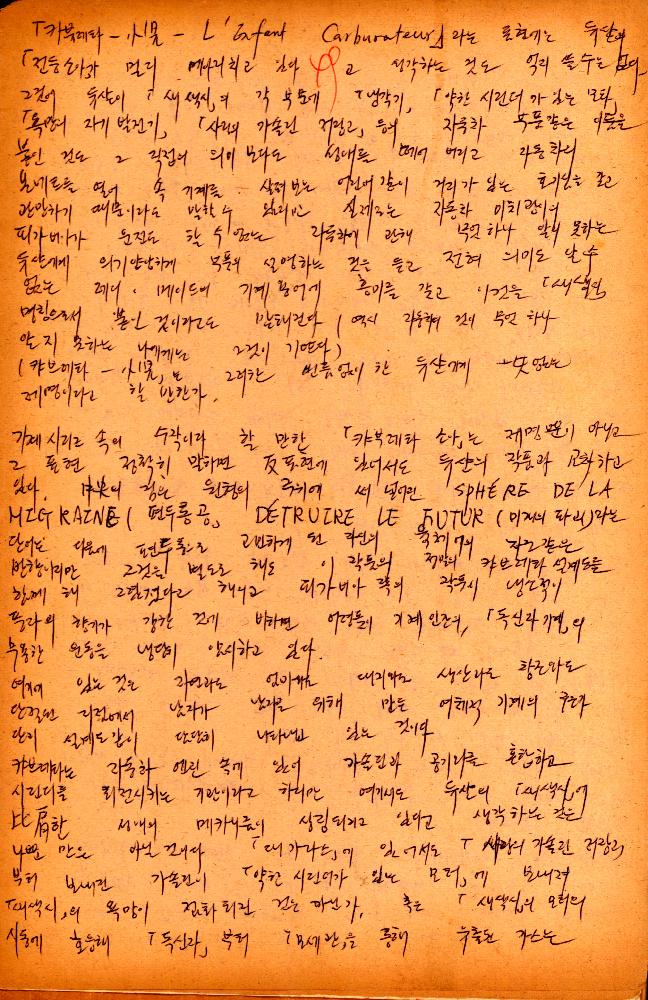 「카뷰레타 - 小児 - L'Enfant Carburateur」라는 표현에는 뒤샹과
「전등소녀가 멀리 메아리치고 있다고 생각하는 것도 억지 쓸 수는 없다.
그것이 뒤샹이 「새색시」의 각 부분에 「냉각기」, 「약한 시린더가 있는 모터」,
「욕망의 자기 발전기」, 「사랑의 가솔린 저장고」 등의 자동차 부품같은 이름을
붙인 것도 그 직접의 의미보다도 상태를 떼어 버리고 자동차의
보네트를 열어 속 기계를 살펴보는 어린이같이 거리가 있는 호기심을 갖고
관망하기 때문이라도 말할 수 있지만 실제로는 자동차 미치광이의
피카비아가 운전도 할 수 없는 자동차에 관해 무엇 하나 알지 못하는
뒤샹에게 의기양양하게 부품의 설명하는 것을 듣고 전혀 의미도 알 수
없는 레디·메이드의 기계 용어에 흥미를 갖고 이것을 「새색시」
명칭으로서 붙인 것이라고도 말해진다 (역시 자동차의 것이 무엇 하나
알지 못하는 나에게는 그것이 기쁘다)
(캬브레타 - 小児」는 그러한 빈틈없이 한 뒤샹에게 더없는
제명이라고 할 만한가.
가제 시리즈 속의 수작이라 할 만한 「캬뷰레타 소아」는 제명뿐이 아니고
그 표현 정확히 말하면 反표현에 있어서도 뒤샹의 작품과 교차하고
있다. 원형의 주위에 써 넣어진 SPHÈRE DE LA
MIGRAINE (편두통공, DÉTRUIRE LE FUTUR (미래의 파괴)라는
단어는 다음에 편두통으로 고민하게 된 자신의 육체에의 자그같은
반항이지만 그것은 별도로 해도 이 작품의 정밀의 캬브레타 설계도를
함께 해 그렸졌다고 해서 피카비아 류의 작품이 냉소적이
풍자의 향기가 강한 것에 비하면 어떵튼지 기계 인간의, 「독신자 기계」의
부육한 운동을 냉담히 암시하고 있다.
여기에 있는 것은 자연라도 엄마라도 대지라도 생산라도 황존라도
단절된 지점에서 남자가 남자를 위해 만든 여체적 기계의 구조가
단지 설계도같이 단단히 나타나고 있는 것이다
캬브레타는 자동차 엔진 속에 있어 가솔린과 공기라를 혼합하고
시린더를 회전시키는 기관이라고 하지만 여기서도 뒤샹의 「새색시」에
比肩한 성애의 메카니즘이 상징되지고 있다고 생각하는 것은
나쁜 만은 아닐 것이다 「대가라스」에 있어서도 「사랑의 가솔린 저장고」
부터 보내진 가솔린이 「약한 시린더가 있는 모터」에 보내져
「새색시」의 욕망이 점화되진 것은 아닌가, 혹은 「새색시」의 모터의
시동에 호응해 「독신자」부터 「모세관」을 통해 유출된 가스는